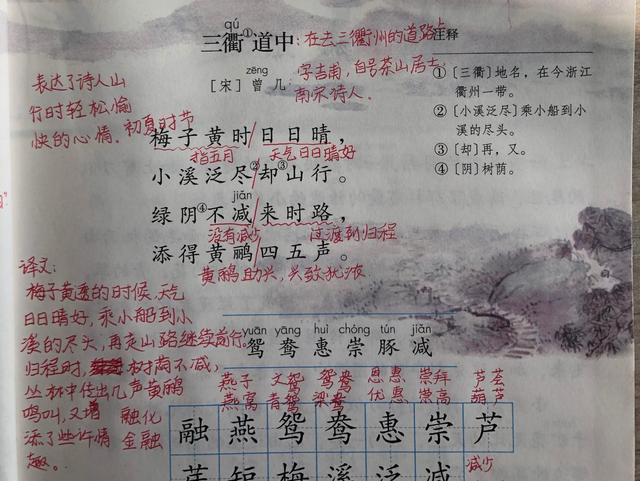 qú
三衢①道中：在去三衢州的道路上
注释
zēng
[宋] 曾几：字吉甫，自号茶山居士，
南宋诗人.
①〔三衢〕地名，在今浙江
衢州一带。
②〔小溪泛尽〕乘小船到小
溪的尽头。
③〔却〕再，又。
④〔阴〕树荫。
表达了诗人山
行时轻松愉
快的心情.
初夏时节
梅子黄时/日日晴，
指五月 天气日日晴好
小溪泛尽②/却③山行。
jiǎn
绿阴④不减/来时路，
没有减少 过渡到归程
添得黄鹂/四五声。
黄鹂助兴，兴致犹浓
译文：
梅子黄透的时候，天气
日日晴好，乘小船到小
溪的尽头，再走山路继续前行。
归程时，树荫不减，
丛林中传出几声黄鹂
鸣叫，又增
添了些许情
趣。
yuān yāng huì chóng tún jiǎn
鸳鸯惠崇豚减
燕子 文鸳 鸳鸯 恩惠 崇拜 芦荟
融化 燕窝 梁鸯 优惠 崇高 葫芦
金融
融燕鸳鸯惠崇芦
减少
芽短梅溪泛减